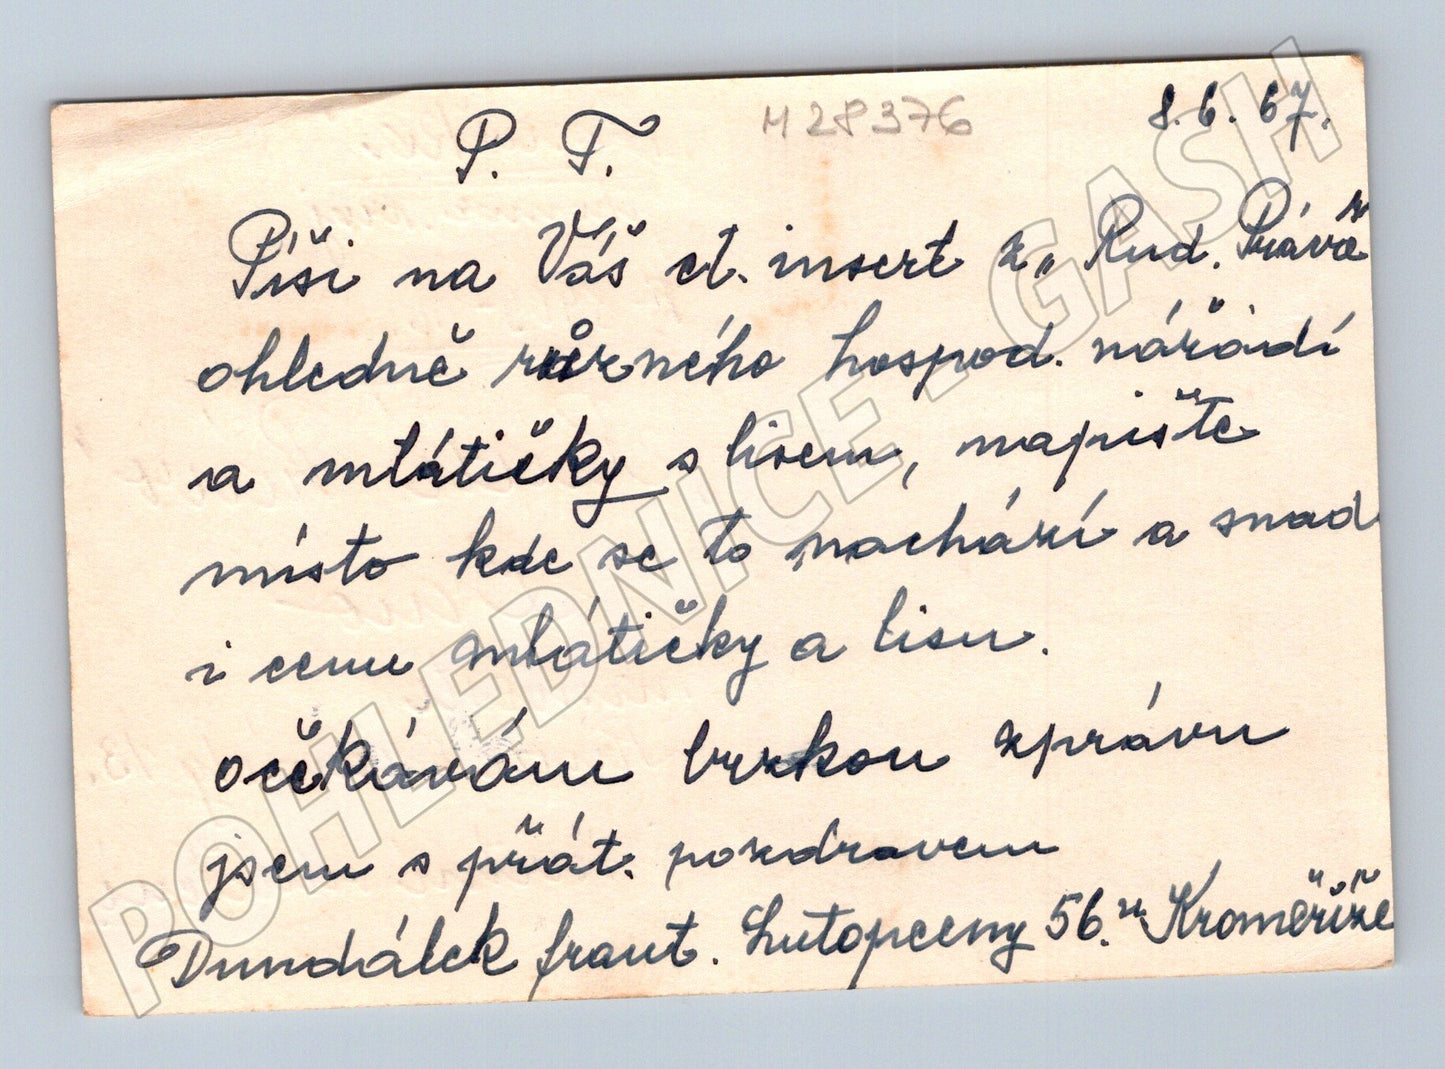 M 28376
8. 6. 67.
P. T.
Píši na Váš ct. insert z „Rud. Práva
ohledně různého hospod. nářadí
a mlátičky s lisem, napište
místo kde se to nachází a snad
i cenu mlátičky a lisu.
očekávám brzkou zprávu
jsem s přát. pozdravem
Dundálek frant. Lutopecny 56. u Kroměříže
POHLEDNICE - GASH